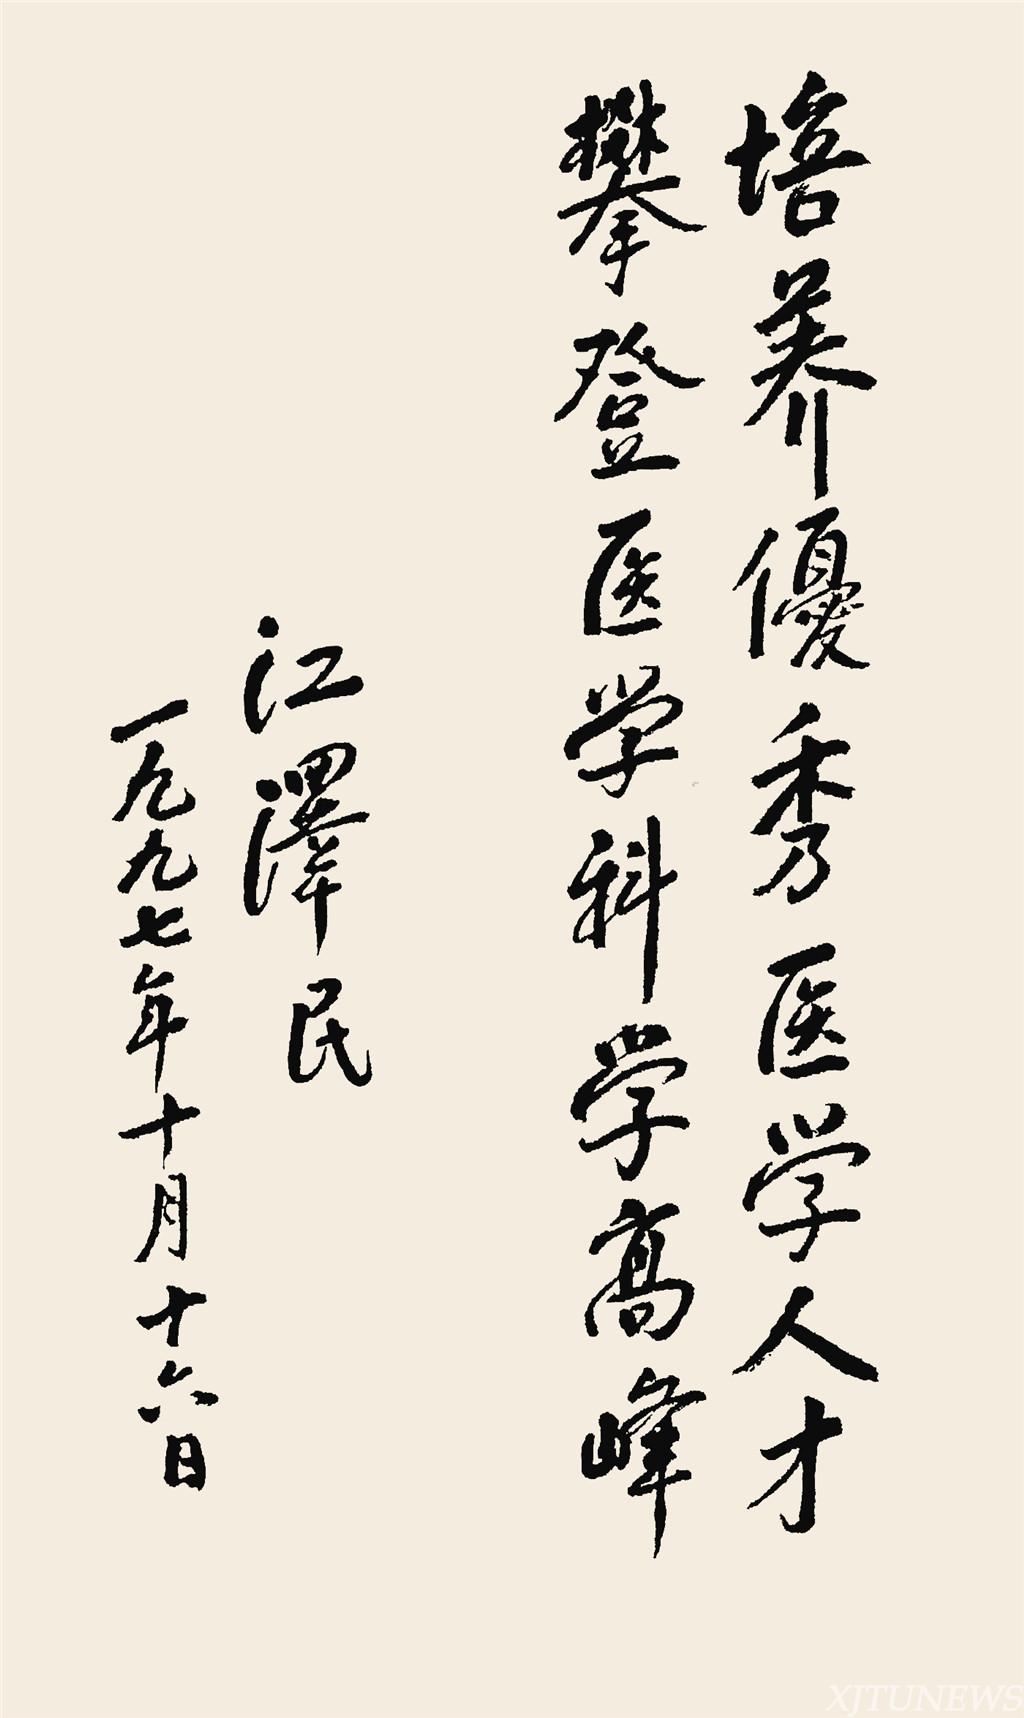 培养優秀医学人才
攀登医学科学高峰
江澤民
一九九七年十月十六日
XJTUNEWS